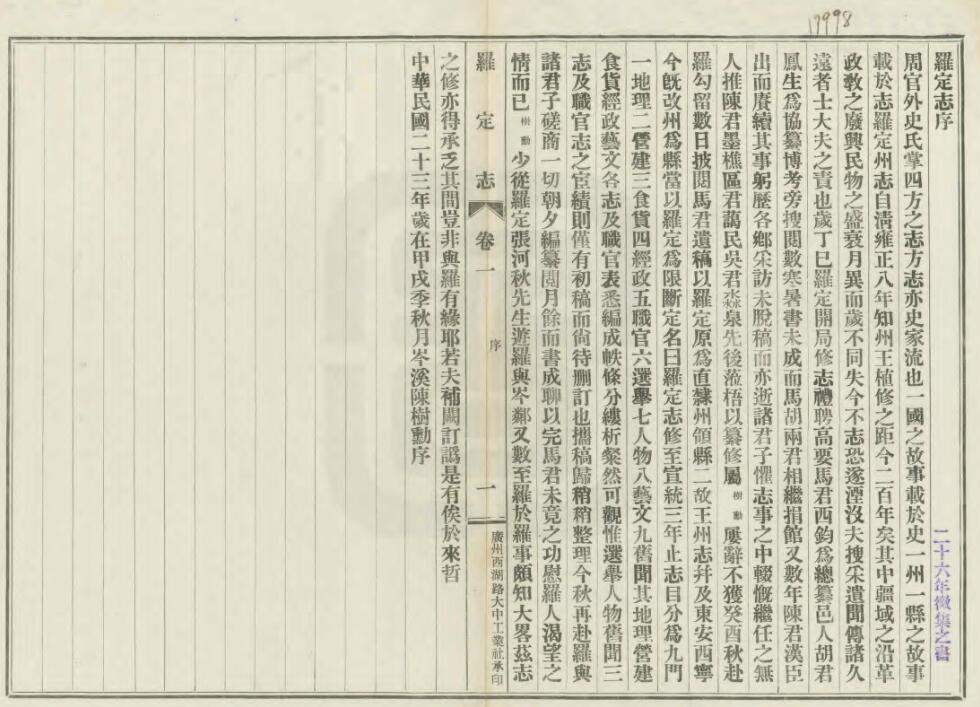 17998
羅定志序
周官外史氏掌四方之志方志亦史家流也一國之故事載於史一州一縣之故事
載於志羅定州志自清雍正八年知州王植修之距今二百年矣其中疆域之沿革
政敎之廢興民物之盛衰月異而歲不同失今不志恐遂湮沒夫搜采遺聞傳諸久
遠者士大夫之責也歲丁巳羅定開局修志禮聘高要馬君西鈞爲總纂邑人胡君
鳳生爲協纂博考旁搜閱數寒暑書未成而馬胡兩君相繼捐館又數年陳君漢臣
出而賡續其事躬歷各鄕采訪未脫稿而亦逝諸君子懼志事之中輟慨繼任之無
人推陳君墨樵區君藹民吳君淼泉先後蒞梧以纂修屬樹勳屢辭不獲癸酉秋赴
羅勾留數日披閱馬君遺稿以羅定原爲直隸州領縣二故王州志幷及東安西寧
今旣改州爲縣當以羅定爲限斷定名曰羅定志修至宣統三年止志目分爲九門
一地理二營建三食貨四經政五職官六選舉七人物八藝文九舊聞其地理營建
食貨經政藝文各志及職官表悉編成帙條分縷析粲然可觀惟選舉人物舊聞三
志及職官志之宦績則僅有初稿而尙待刪訂也攜稿歸稍稍整理今秋再赴羅與
諸君子磋商一切朝夕編纂閱月餘而書成聊以完馬君未竟之功慰羅人渴望之
情而已樹勳少從羅定張河秋先生遊羅與岑鄰又數至羅於羅事頗知大畧茲志
羅定志 卷一 序 一 廣州西湖路大中工業社承印
之修亦得承乏其間豈非與羅有緣耶若夫補闕訂譌是有俟於來哲
中華民國二十三年歲在甲戌季秋月岑溪陳樹勳序
二十六年徵集之書